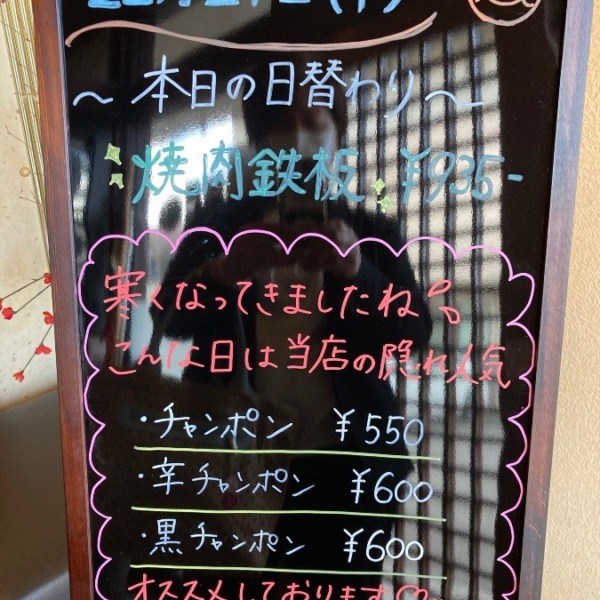 ～本日の日替わり～
焼肉鉄板 ¥935-
寒くなってきましたね
こんな日は当店の隠れ人気
・チャンポン ¥550
・辛チャンポン ¥600
・黒チャンポン ¥600
オススメしております